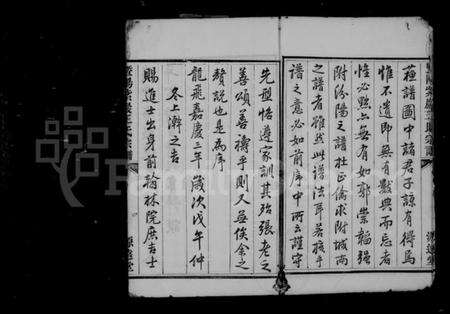 蘓譜圖中諸君子諒有得焉
惟不遺即無背獸典而忘者
惟必無上無有如郭崇韜強
附汾陽之譜杜正倫求附城南
之譜者雖然此譜法耳若孩子
譜之意必如前序中所云謹守
先型恪遵家訓其殆張老之
善頌善禱乎則又無俟余之
贅說也是為序
龍飛嘉慶三年歲次戊午仲
冬上澣之吉
賜進士出身前翰林院庶吉士